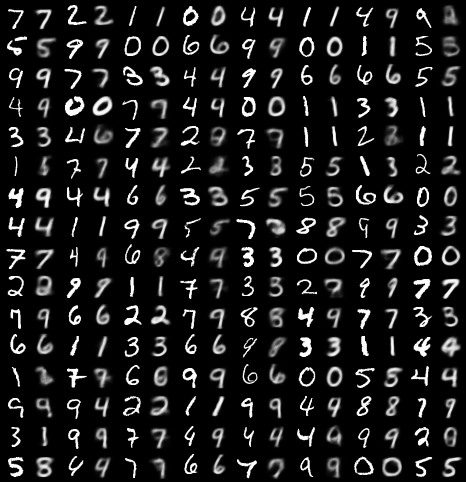 7 7 2 2 1 1 0 0 4 4 1 1 4 9 9
5 5 9 9 0 0 6 6 9 9 0 0 1 1 5 5
9 9 7 7 3 3 4 4 9 9 6 6 6 6 5 5
4 9 0 0 7 9 4 4 0 0 1 1 3 3 1 1
3 3 4 6 7 7 2 7 9 1 1 2 1 1
1 7 7 4 4 2 3 3 5 5 1 3 2 2
4 9 4 4 6 6 3 3 5 5 5 5 6 6 0 0
4 4 1 1 9 9 5 5 7 8 8 9 9 3 3
7 7 4 9 6 8 4 9 3 3 0 0 7 7 0 0
2 9 9 1 1 7 7 3 3 2 9 9 7 7
7 9 6 6 2 2 7 9 8 8 4 9 7 7 3 3
6 6 1 1 3 3 6 6 9 8 3 3 1 1 4 4
1 7 7 6 6 9 9 6 6 0 0 5 5 4 4
9 9 9 4 2 2 1 1 9 9 4 9 8 8 7 9
3 1 9 9 7 7 4 9 4 4 4 9 9 9 2
5 8 4 4 7 7 6 6 7 9 9 0 0 5 5